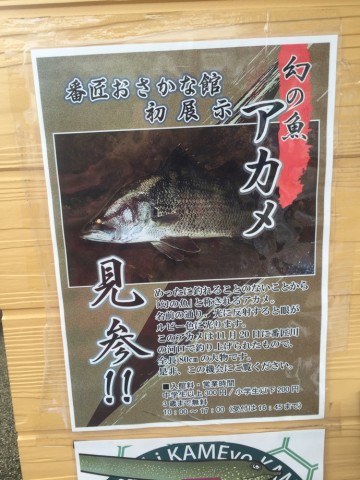 幻の魚
アカメ
番匠おさかな館
初展示
見参!!
めったに釣れることのないことから
「幻の魚」と称されるアカメ。
名前の通り、光に反射すると眼が
ルビー色に光ります。
このアカメは11月20日に番匠川
の河口で釣り上げられたもので、
全長80cmの大物です。
是非、この機会にご覧ください。
■入館料・営業時間
中学生以上300円/小学生以下200円
3歳まで無料
10:00~17:00 (受付は16:45まで)
KAMEYO KAM